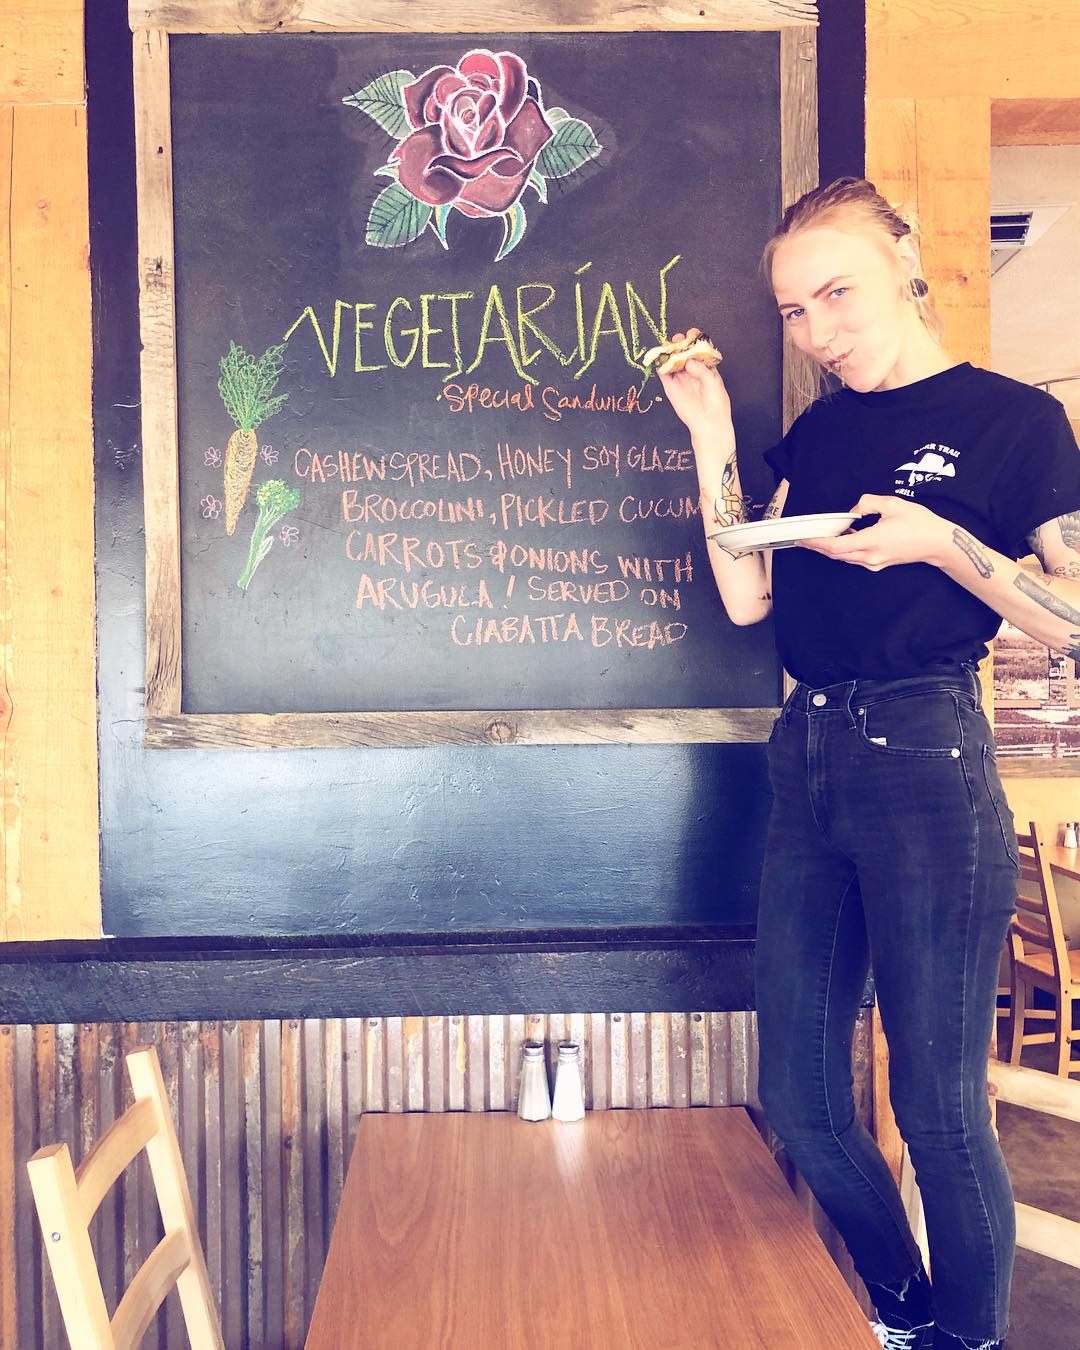 VEGETARIAN
·Special Sandwich·
CASHEW SPREAD, HONEY SOY GLAZE
BROCCOLINI, PICKLED CUCUM
CARROTS & ONIONS WITH
ARUGULA! SERVED ON
CIABATTA BREAD
TRAIL
GRILL